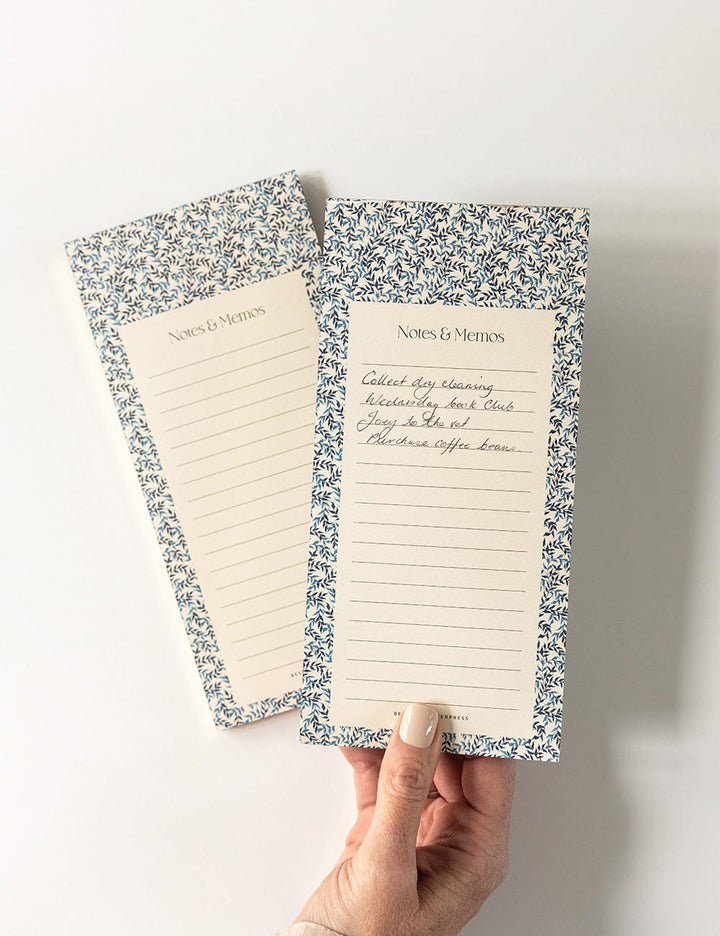 Notes & Memos
Notes & Memos
Collect dry cleaning
Wednesday book Club
Joey to the vet
Purchase coffee beans.